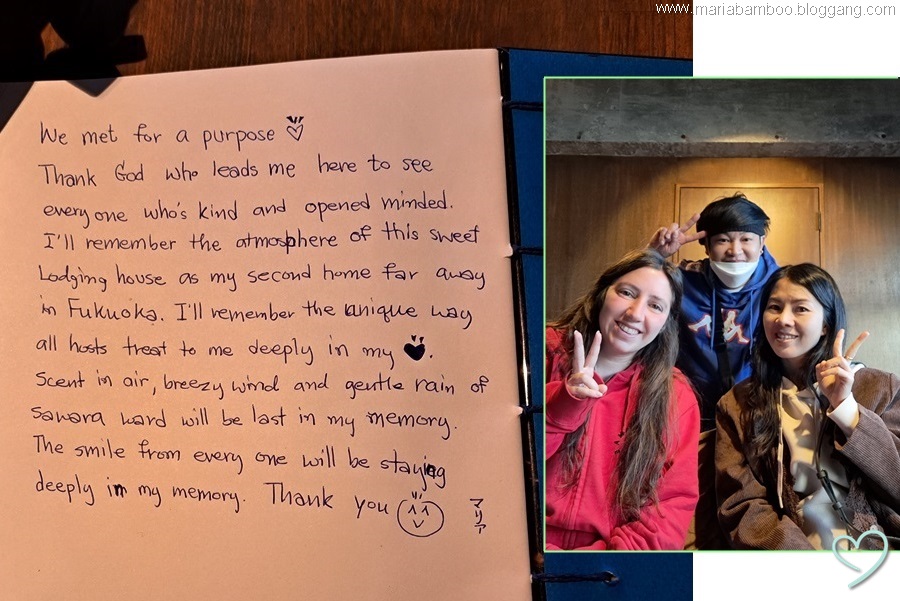 www.mariabamboo.bloggang.com
We met for a purpose
Thank God who leads me here to see
everyone who's kind and opened minded.
I'll remember the atmosphere of this sweet
Lodging house as my second home far away
in Fukuoka. I'll remember the unique way
all hosts treat to me deeply in my ♥.
Scent in air, breezy wind and gentle rain of
Sawara ward will be last in my memory.
The smile from every one will be staying
deeply in my memory. Thank you
マリア